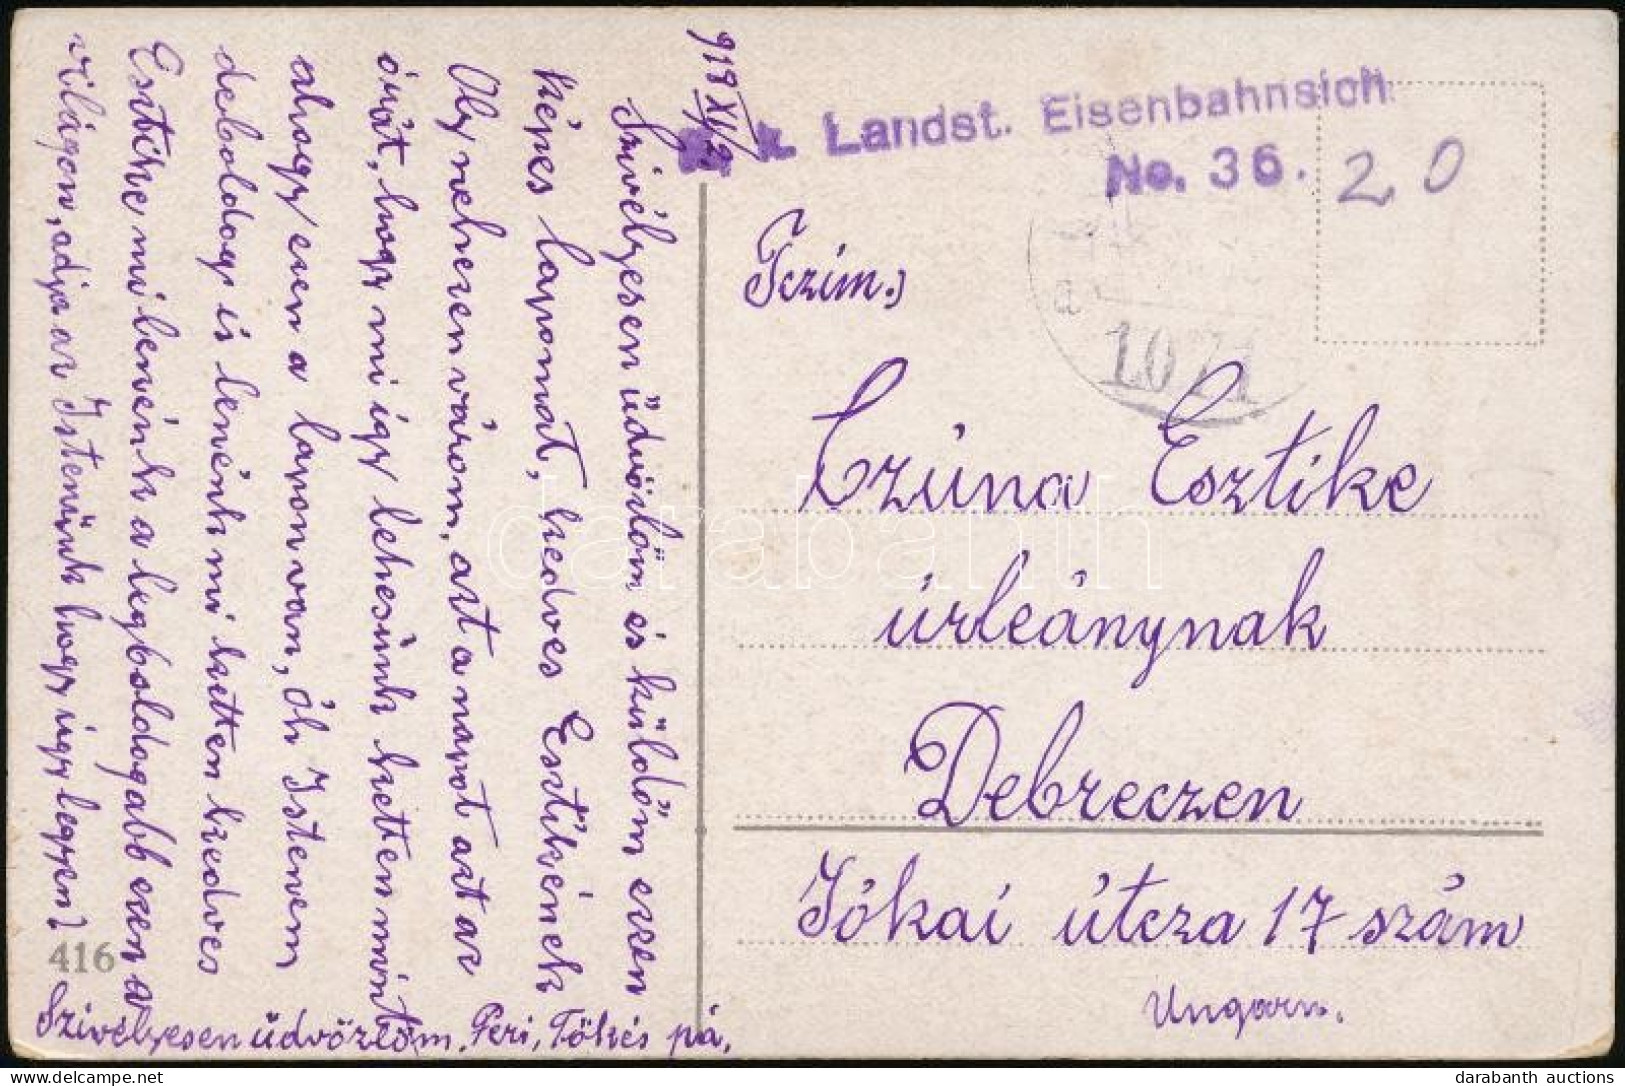 918 XII/2
Szivélyesen üdvözlöm és küldöm ezen
képes lapomat, kedves Esztikének
Oly nehezen várom, azt a napot azt az
órát, hogy mi igy lehesünk ketten mint
ahogy ezen a lapon van, óh Istenem
deboldog is lenénk mi ketten kedves
Esztike mi lenénk a legboldogabb ezen a
világon, adja az Istenünk hogy úgy legyen?
Szivélyesen üdvözlöm. Feri, Tökés pá.
416
k. Landst. Eisenbahnsich
No. 36.
20
a
1071
Fczím.)
Czúna Esztike
úrleánynak
Debreczen
Jókai útcza 17 szám
Ungarn.
darabanth
darabanth auctions